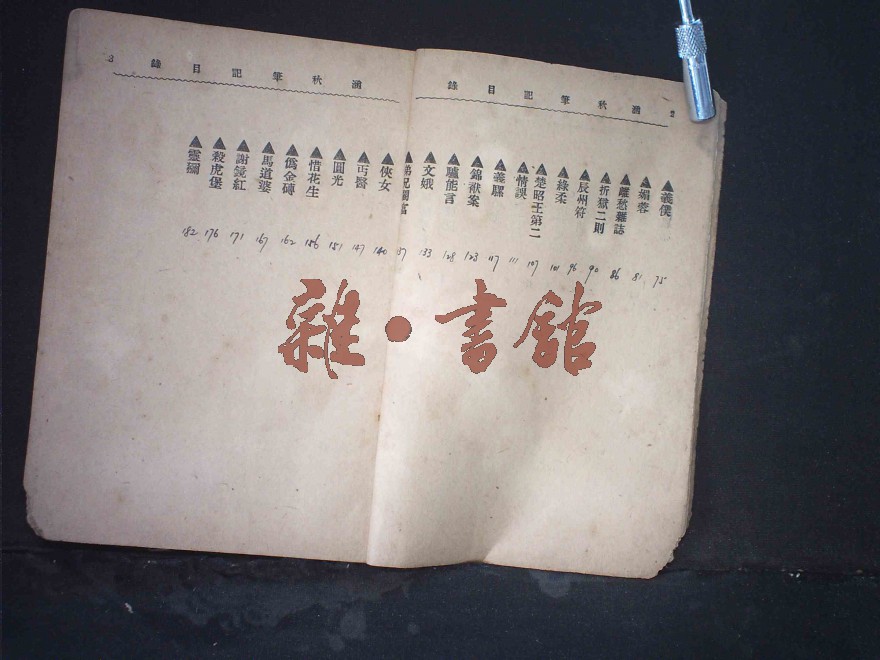 涵秋筆記目錄 2
▲義僕 75
▲媚蓉 81
▲離愁雜誌 86
▲折獄二則 90
▲辰州符 96
▲綠柔 101
▲楚昭王第二 107
▲情誤 111
▲義騾 117
▲錦獄案 123
▲驢能言 128
▲文娥 133
弟兄圖富 137
涵秋筆記目錄 3
▲俠女 140
▲丐醫 147
▲圓光 151
▲惜花生 156
▲僞金磚 162
▲馬道婆 167
▲謝鏡紅 171
▲殺虎堡 176
▲靈 182
雜·書館